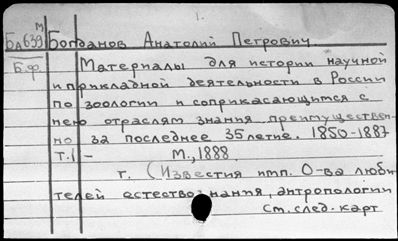 1.
м
Бд639 Богданов Анатолий Петрович
Б.ф. Материалы для истории научной
и прикладной деятельности в России
по зоологии и соприкасающимся с
нею отраслям знания преимуществен-
но за последнее 35летие. 1850-1887
т.1 - М., 1888.
т. (Известия имп. О-ва люби-
телей естествознания, антропологии
См. след. карт